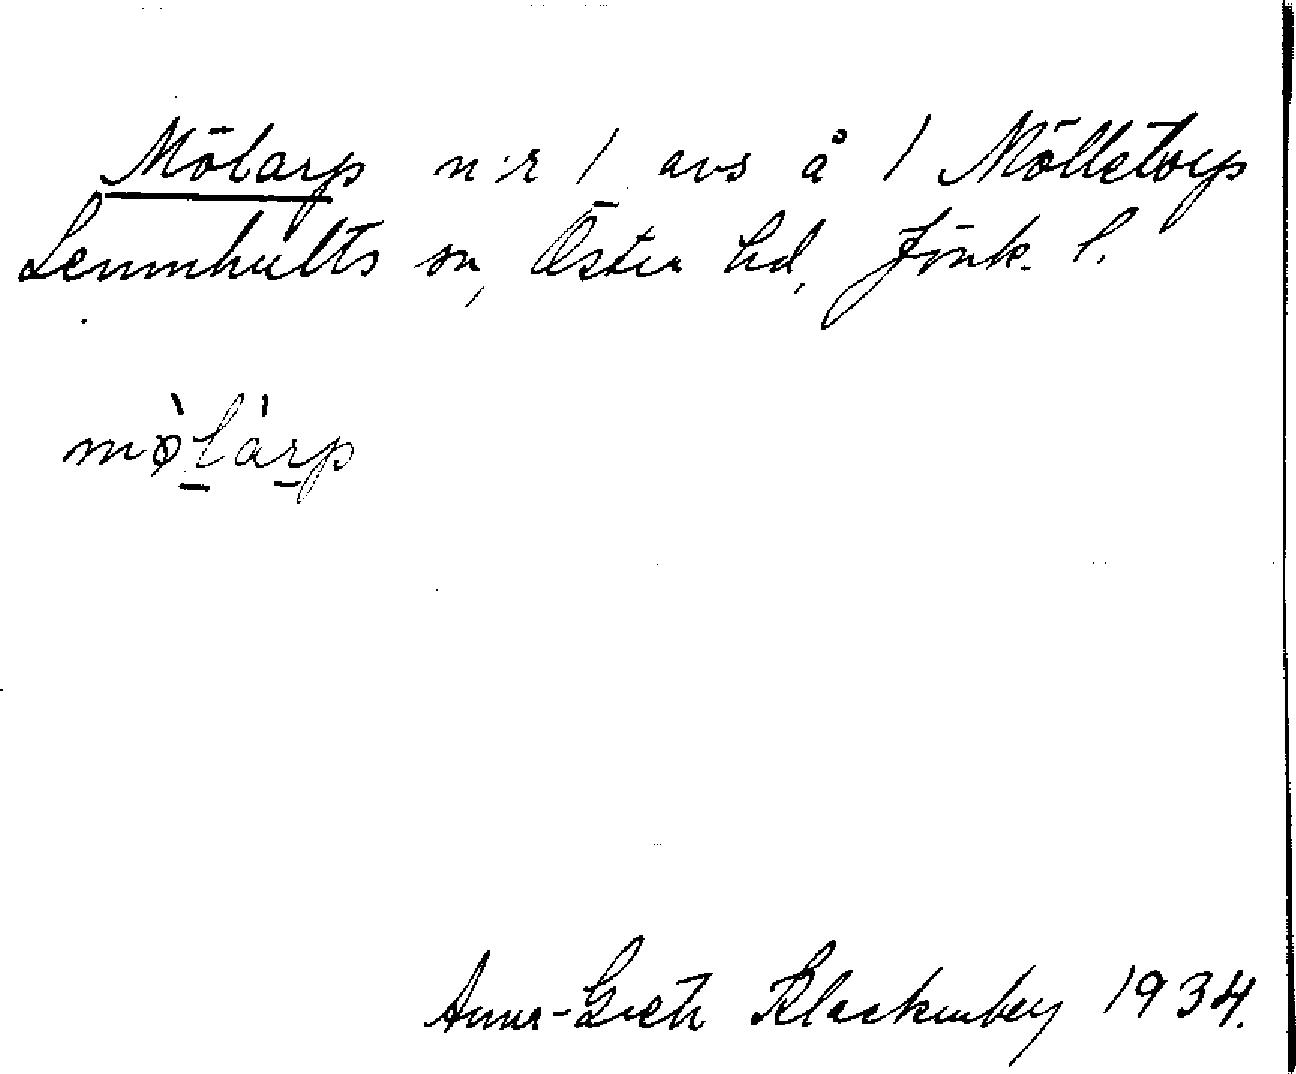 Mölarp n:r 1 avs å 1 Mölletorp
Lemnhults sn, Öster hd, Jönk. l.
mø̀l̠àr̠p
Anna-Greta Klackenberg 1934.